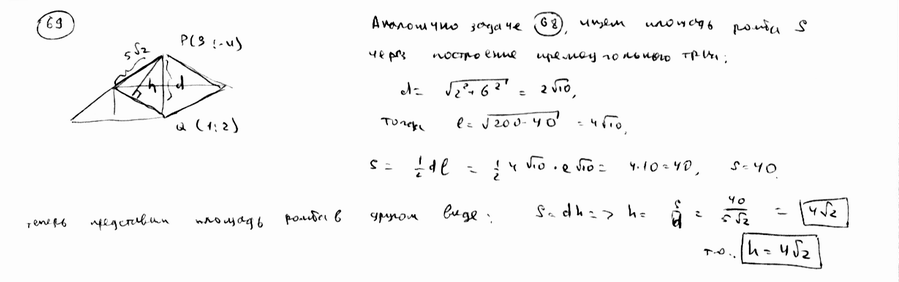 69
P(3;-4)
5√2
h d
Q(1;2)
Аналогично задаче 68, ищем площадь ромба S
через построение прямоугольного тр-ка:
d = √(2²+6²) = 2√10,
тогда l = √(200-40) = 4√10,
S = 1/2 dl = 1/2 4√10 · 2√10 = 4·10 = 40, S = 40.
теперь представим площадь ромба в другом виде: S = dh => h = S/d = 40/5√2 = 4√2
т.о.. h = 4√2